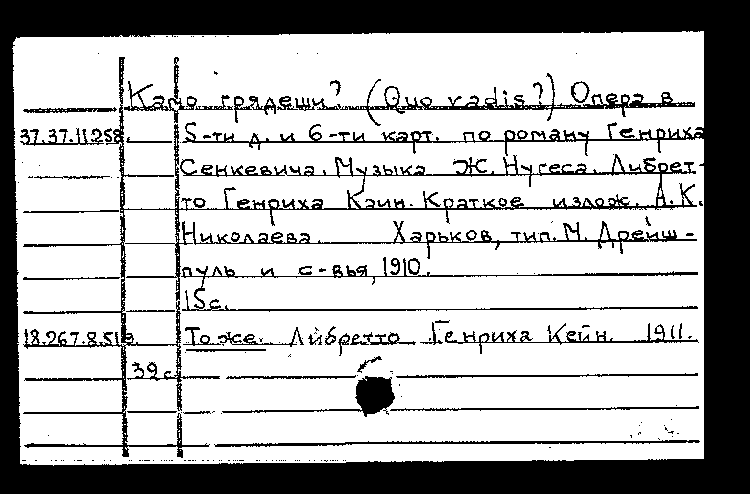 Камо грядеши? (Quo vadis?) Опера в
37.37.11.258. 5-ти д. и 6-ти карт. по роману Генриха
Сенкевича. Музыка Ж. Нугеса. Либрет-
то Генриха Каин. Краткое излож. А.К.
Николаева. Харьков, тип. М. Дрейш-
пуль и с-вья, 1910.
15с.
18.267.8.519. То же. Либретто Генриха Кейн. 1911.
39 с